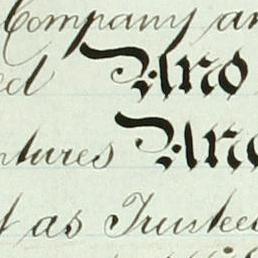 Company an
ed And
ntures And
t as Trustee